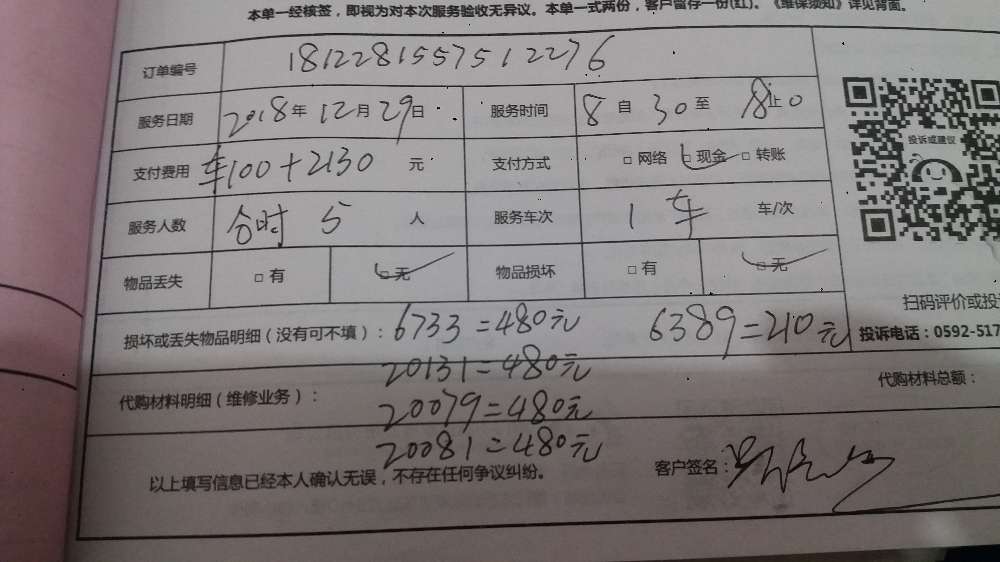 本单一经核签，即视为对本次服务验收无异议。本单一式两份，客户留存一份(红)。《维保须知》详见背面。
订单编号 1812281557512276
服务日期 2018年12月29日 服务时间 8自30至 8止0
投诉或建议
支付费用 车100+2130元 支付方式 □网络 □现金 □转账
服务人数 合时 5人 服务车次 1车 车/次
物品丢失 □有 □无 物品损坏 □有 □无
扫码评价或投
损坏或丢失物品明细（没有可不填）：6733=480元 6389=210元
投诉电话：0592-517
20131=480元
代购材料明细（维修业务）： 代购材料总额：
20079=480元
20081=480元
以上填写信息已经本人确认无误，不存在任何争议纠纷。 客户签名：